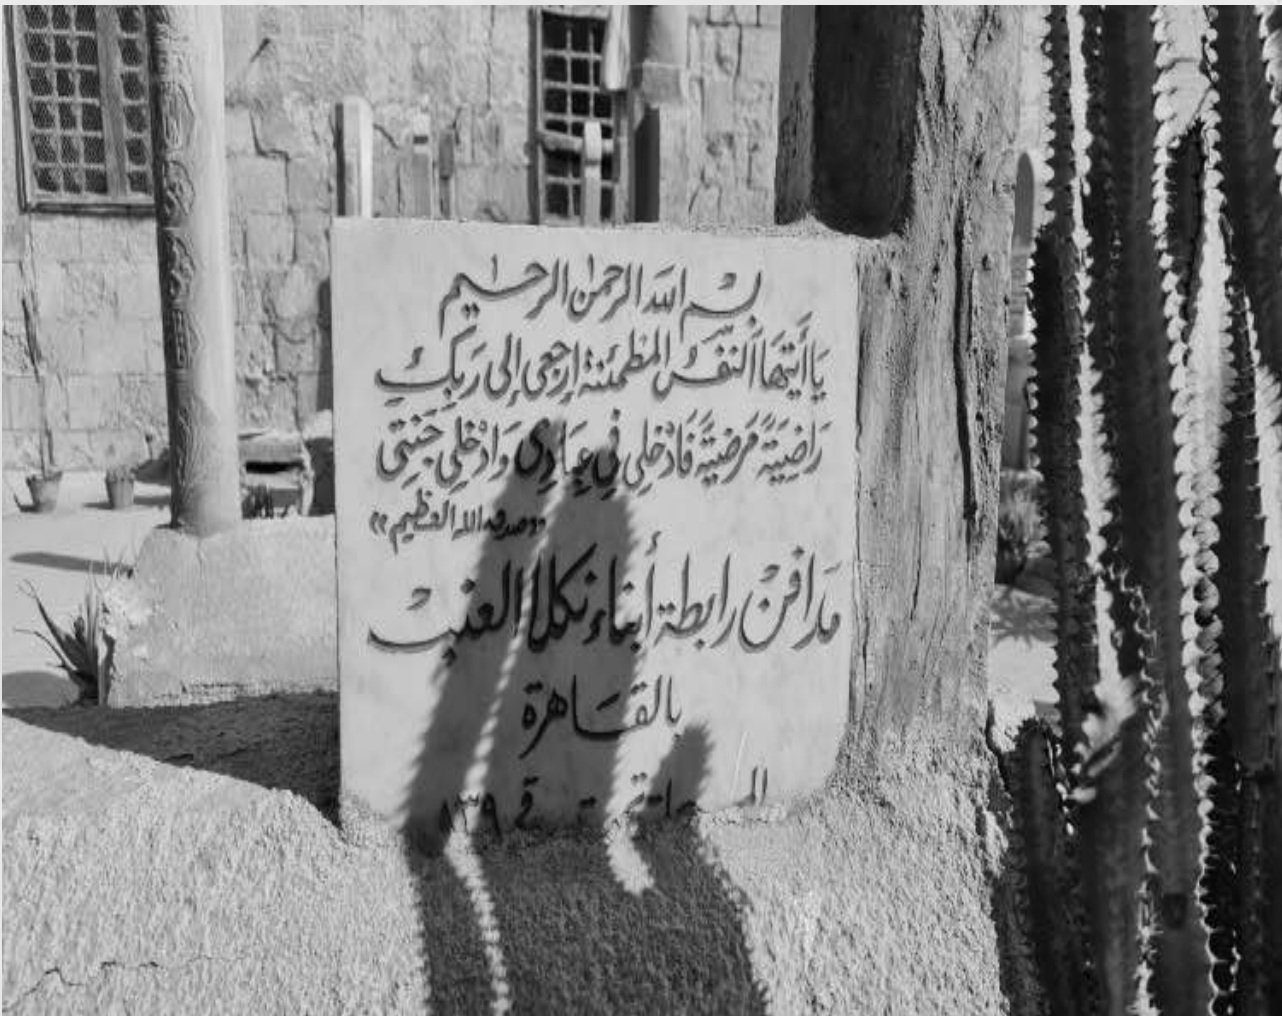 بسم الله الرحمن الرحيم
يَا أَيتها النفسُ المطمئنة إرجعى إلى رَبكِ
رَاضِيَةً مَرضيةً فَادْخلِى فِي عِبَادِى وَادْخلِى جَنتِى
«صدق الله العظيم»
مَدافن رابطة أبناء نكلا العنب
بالقاهرة
١٨٣٩